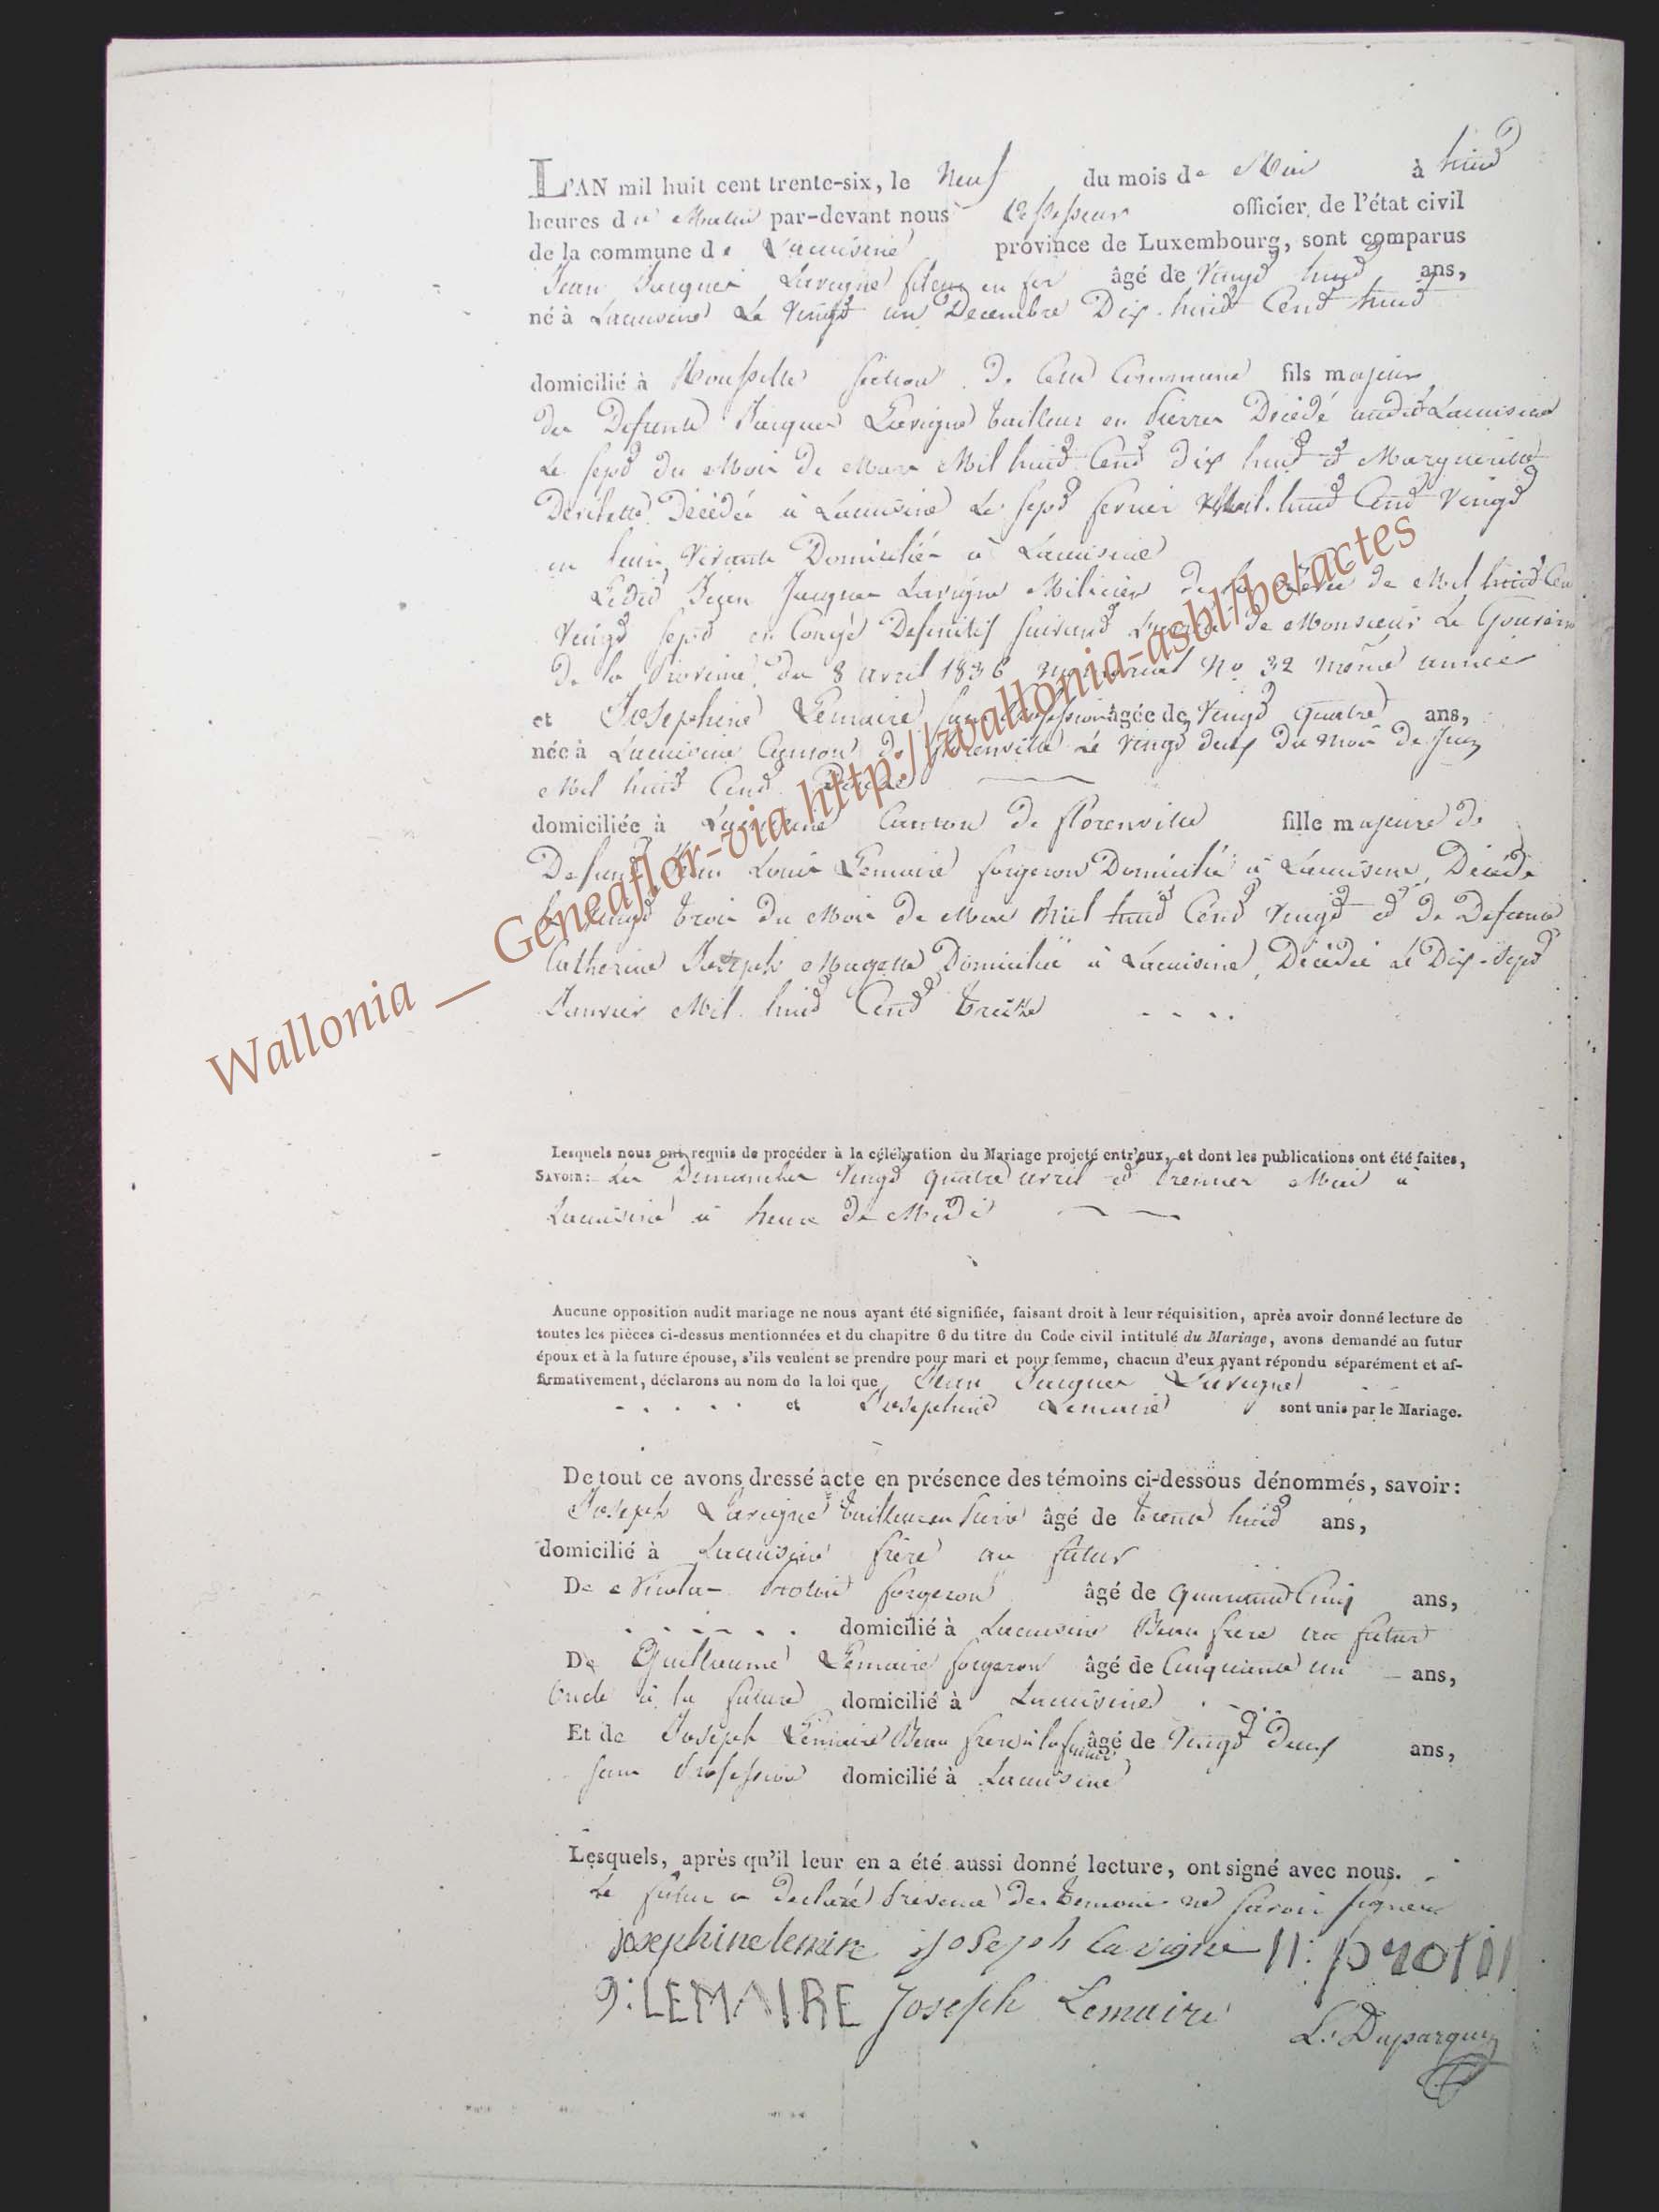 L'AN mil huit cent trente-six, le Neuf du mois de Mai à huid
heures du Matin par-devant nous assesseur officier de l'état civil
de la commune de Lacuisine province de Luxembourg, sont comparus
Jean Jacques Lavigne fileur en fer âgé de Vingd huid ans,
né à Lacuisine Le Vingd un Decembre Dix-huid Cend huid
domicilié à section de Cette Commune fils majeur
des Defunts Jacques Lavigne tailleur en Pierres Décédé audid Lacuisine
Le sepd du Mois de Mars Mil huid Cend dix huid ed Marguerite
Décédée à Lacuisine Le sepd fevrier Mil huid Cend Vingd
en leurs Vivants Domiciliés à Lacuisine
Ledid Jean Jacques Lavigne Milicien de la de Mil huid Cen
Vingd sepd en Congé Definitif suivand de Monsieur Le Gouvern
de la Province du 8 avril 1836 No 32 même année
et Josephine Lemaire sans profession âgée de Vingd quatre ans,
née à Lacuisine Canton de florenville Le Vingd deux du mois de Juin
Mil huid Cend
domiciliée à Lacuisine Canton de florenville fille majeure de
Defund Jean Louis Lemaire forgeron Domicilié à Lacuisine, Décédé
Le Vingd trois du Mois de Mars Mil huid Cend Vingd ed de Defunte
Catherine Joseph Magette Domiciliée à Lacuisine, Décédée Le Dix-sepd
Janvier Mil huid Cend treize
Wallonia __ Geneaflor-via http://wallonia-asbl/be/actes
Lesquels nous ont requis de procéder à la célébration du Mariage projeté entr'eux, et dont les publications ont été faites,
SAVOIR: Les Dimanches Vingd quatre avril ed premier Mai à
Lacuisine à heure de Midi
Aucune opposition audit mariage ne nous ayant été signifiée, faisant droit à leur réquisition, après avoir donné lecture de
toutes les pièces ci-dessus mentionnées et du chapitre 6 du titre du Code civil intitulé du Mariage, avons demandé au futur
époux et à la future épouse, s'ils veulent se prendre pour mari et pour femme, chacun d'eux ayant répondu séparément et af-
firmativement, déclarons au nom de la loi que Jean Jacques Lavigne
et Josephine Lemaire sont unis par le Mariage.
De tout ce avons dressé acte en présence des témoins ci-dessous dénommés, savoir:
Joseph Lavigne tailleur en Pierre âgé de trente huid ans,
domicilié à Lacuisine frère au futur
De Nicolas Protin forgeron âgé de quarante Cinq ans,
domicilié à Lacuisine Beau frere au futur
De Guillaume Lemaire forgeron âgé de Cinquante un ans,
Oncle à la future domicilié à Lacuisine
Et de Joseph Lemaire Beau frere à la future âgé de Vingd deux ans,
sans Profession domicilié à Lacuisine
Lesquels, après qu'il leur en a été aussi donné lecture, ont signé avec nous.
Le futur a declaré Présence des temoins ne savoir signer
josephine lemire joseph Lavigne N: protin
g: LEMAIRE Joseph Lemaire
L: Duparque